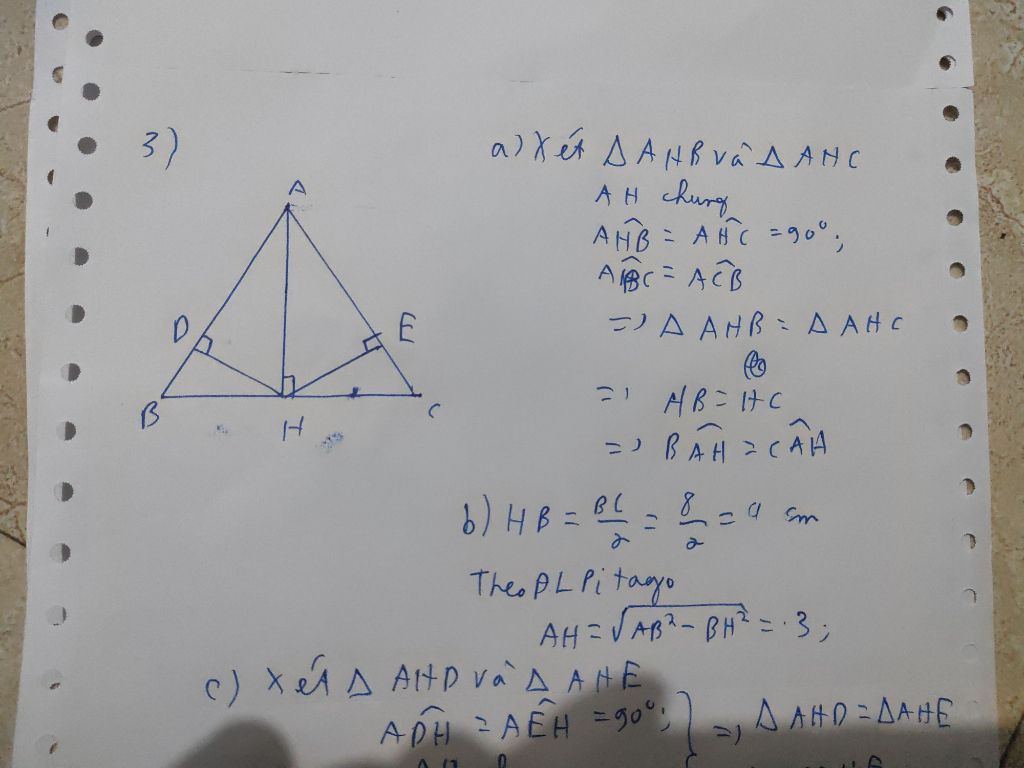 3)
A
D
E
B
H
C
a) Xét Δ AHB và Δ AHC
AH chung
AH̑B = AH̑C = 90°;
AB̑C = AC̑B
=> Δ AHB = Δ AHC
=> HB = HC
=> BÂH = CÂH
b) HB = BC/2 = 8/2 = 4 cm
Theo ĐL Pitago
AH = √(AB² - BH²) = 3;
c) Xét Δ AHD và Δ AHE
AD̑H = AȆH = 90°; } => Δ AHD = Δ AHE